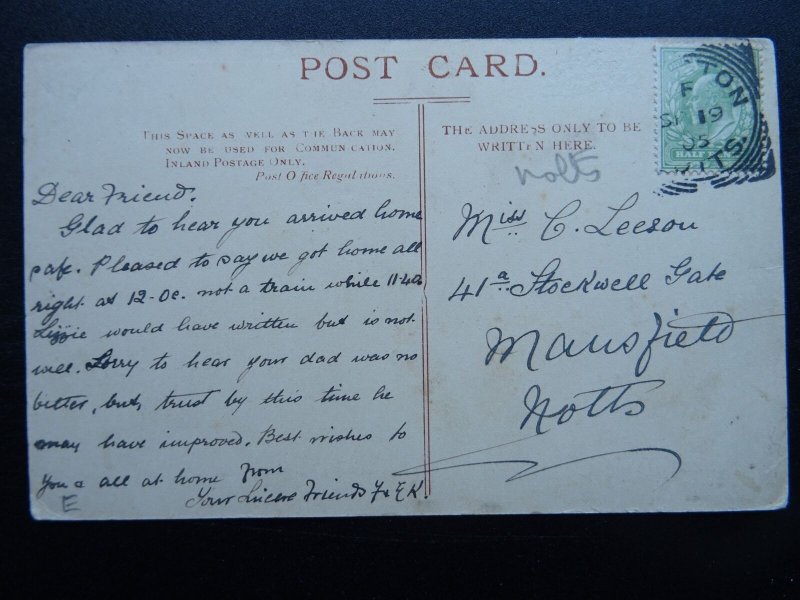 POST CARD.
THIS SPACE AS WELL AS THE BACK MAY
NOW BE USED FOR COMMUNICATION.
INLAND POSTAGE ONLY.
Post Office Regulations.
THE ADDRESS ONLY TO BE
WRITTEN HERE.
Notts
TON
F
SP 19
05
TTS.
HALF
Dear Friend.
Glad to hear you arrived home
safe. Pleased to say we got home all
right at 12-Oc. not a train while 11-40
Lizzie would have written but is not
well. Sorry to hear your dad was no
better, but trust by this time he
may have improved. Best wishes to
you & all at home from
Your Sincere Friends F & E K.
E
Miss C. Leeson
41a Stockwell Gate
Mansfield
Notts